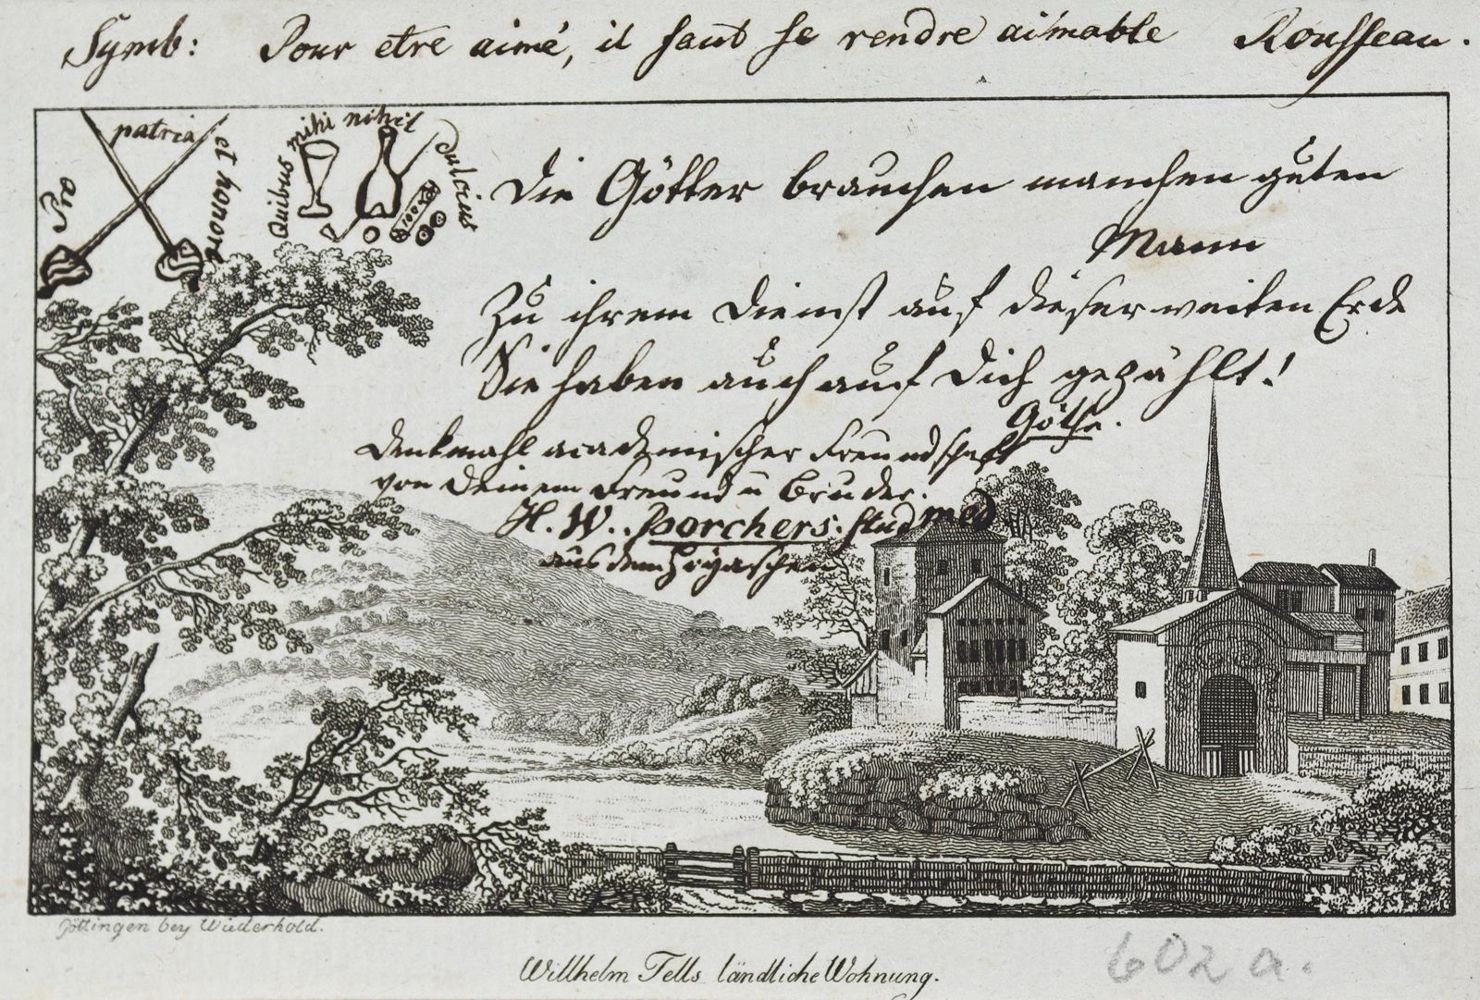 Symb: Pour etre aimé, il faut se rendre aimable Rousseau.
pro patria et honore
Quibus mihi nihil dulcius
Die Götter brauchen manchen guten
Mann
Zu ihrem Dienst auf dieser weiten Erde
Sie haben auch auf Dich gezählt!
Göthe.
Denkmahl academischer Freundschaft
von Deinem Freund u Bruder.
H. W. Borchers. stud med
aus dem
Göttingen bey Wiederhold.
Willhelm Tells ländliche Wohnung.
602 a.